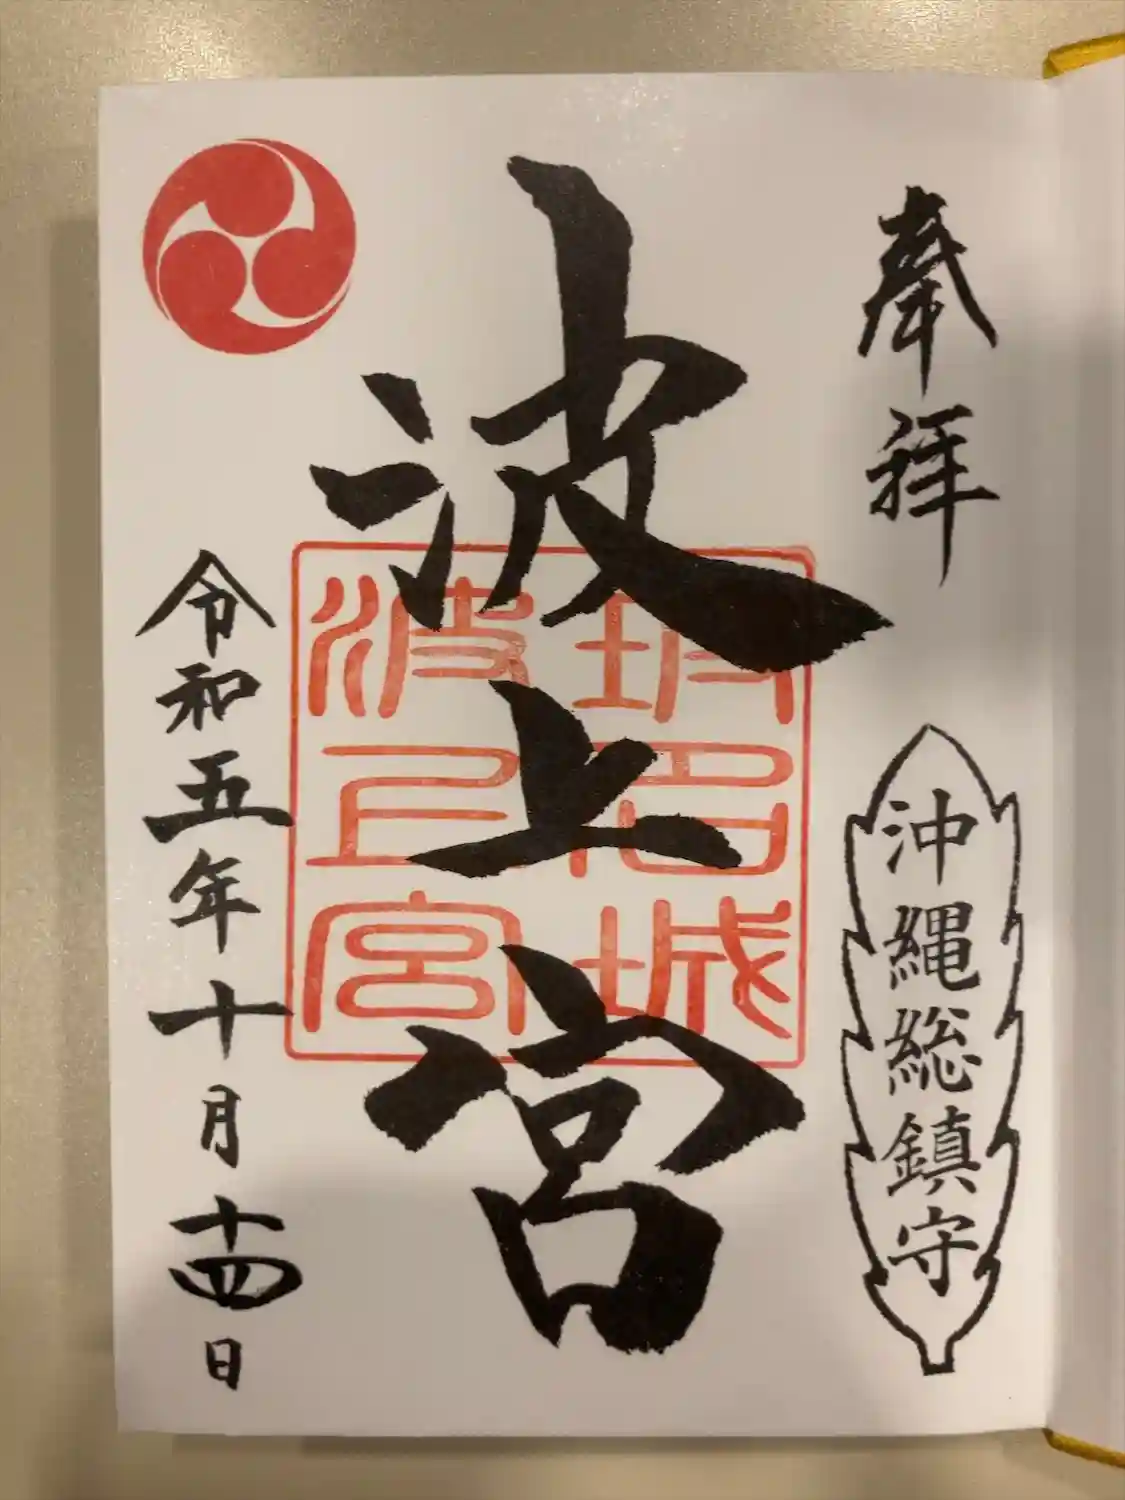 奉拝
沖縄総鎮守
波上宮
琉球
名城
波上宮
令和五年十月十四日